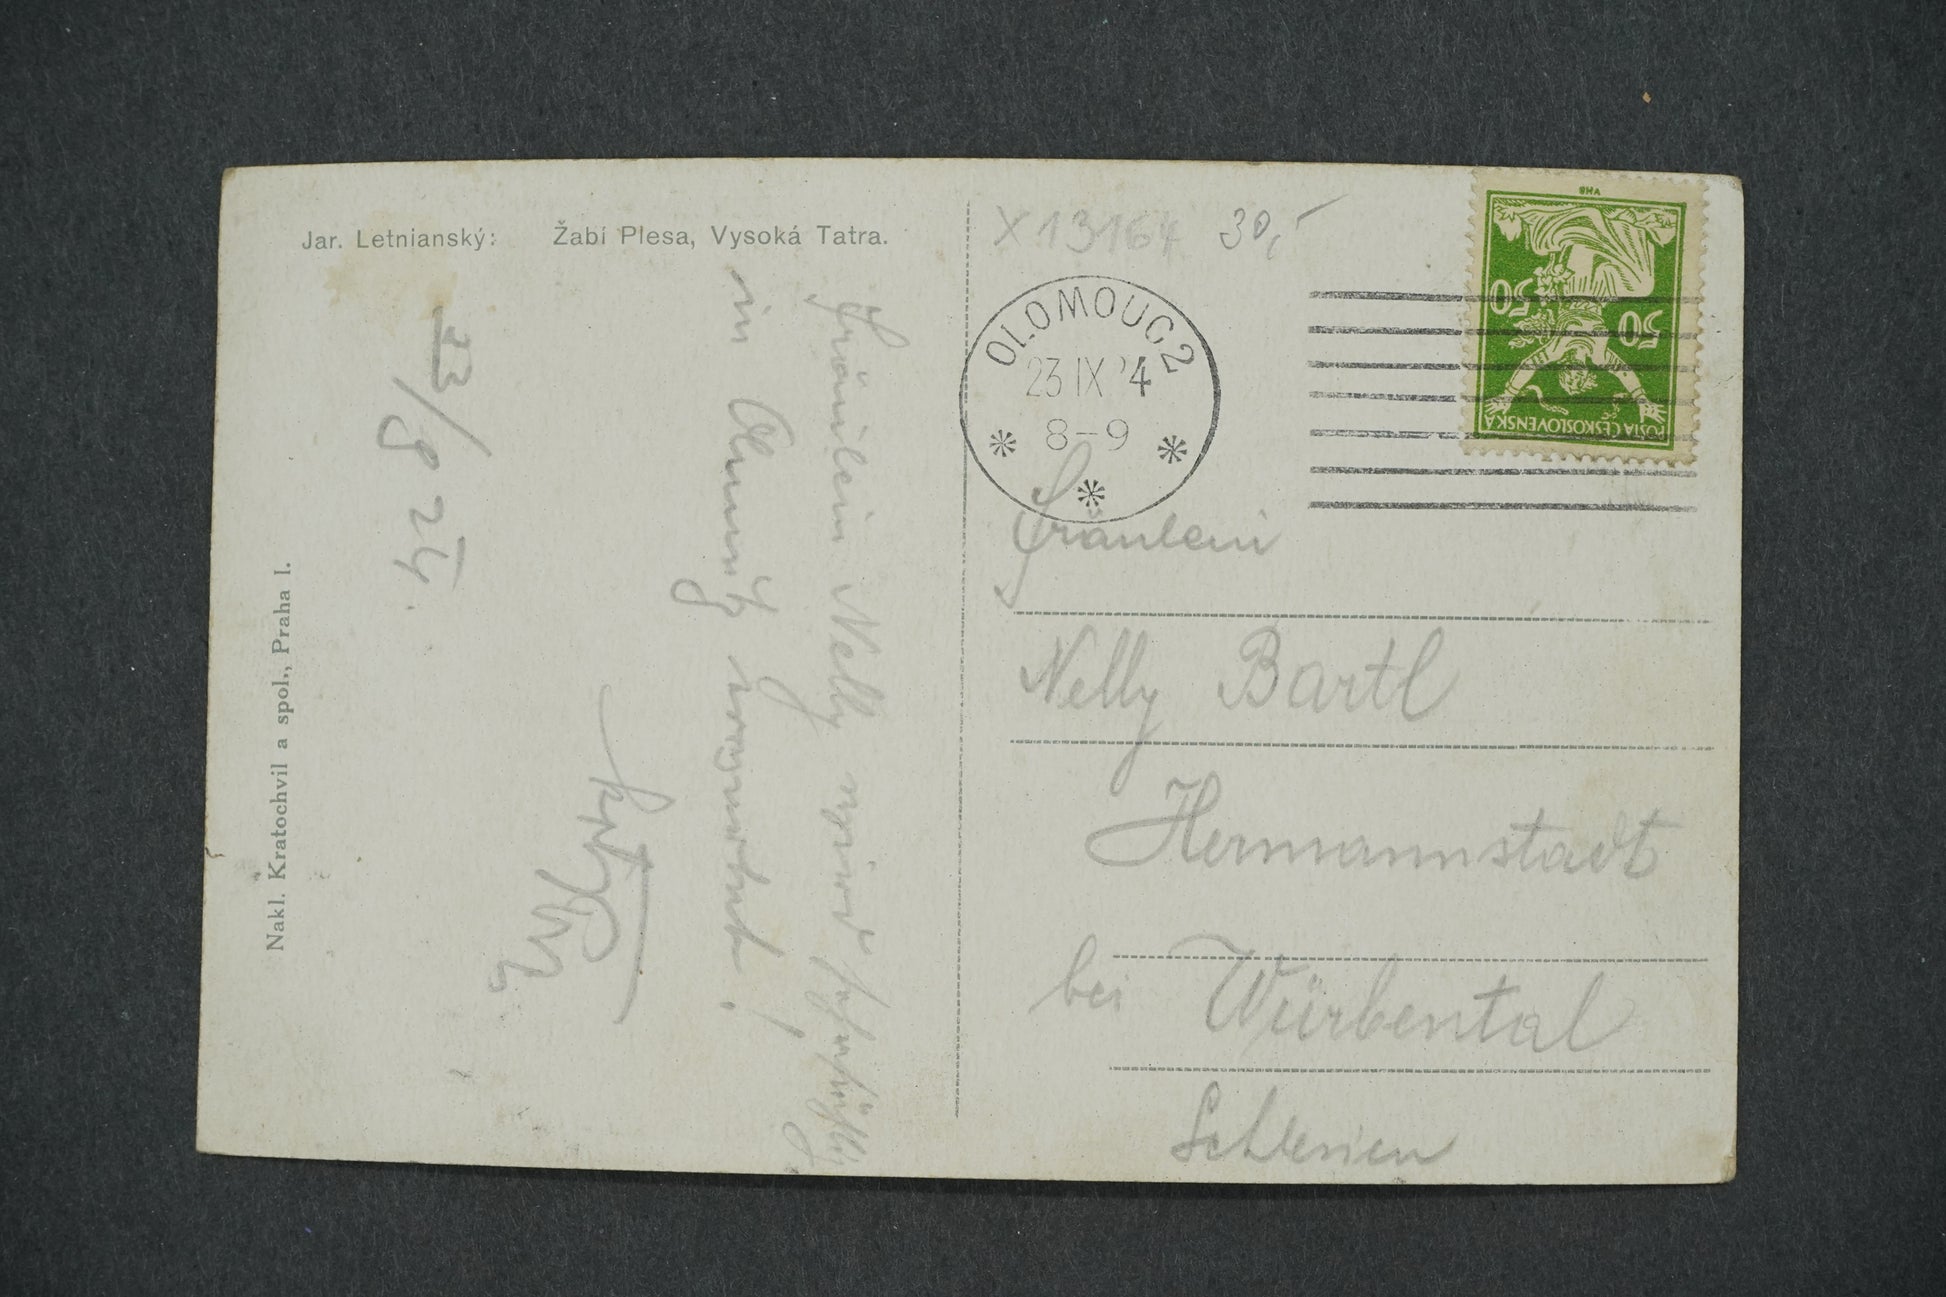 Jar. Letnianský: Žabí Plesa, Vysoká Tatra.
Nakl. Kratochvil a spol., Praha I.
23/8 24.
Fräulein Nelly wird
in Olmütz erwartet!
X 13164 30,-
OLOMOUC 2
23 IX '4
8-9
VHB
50 50
POŠTA ČESKOSLOVENSKÁ
Fräulein
Nelly Bartl
Hermannstadt
bei Würbental
Schlesien